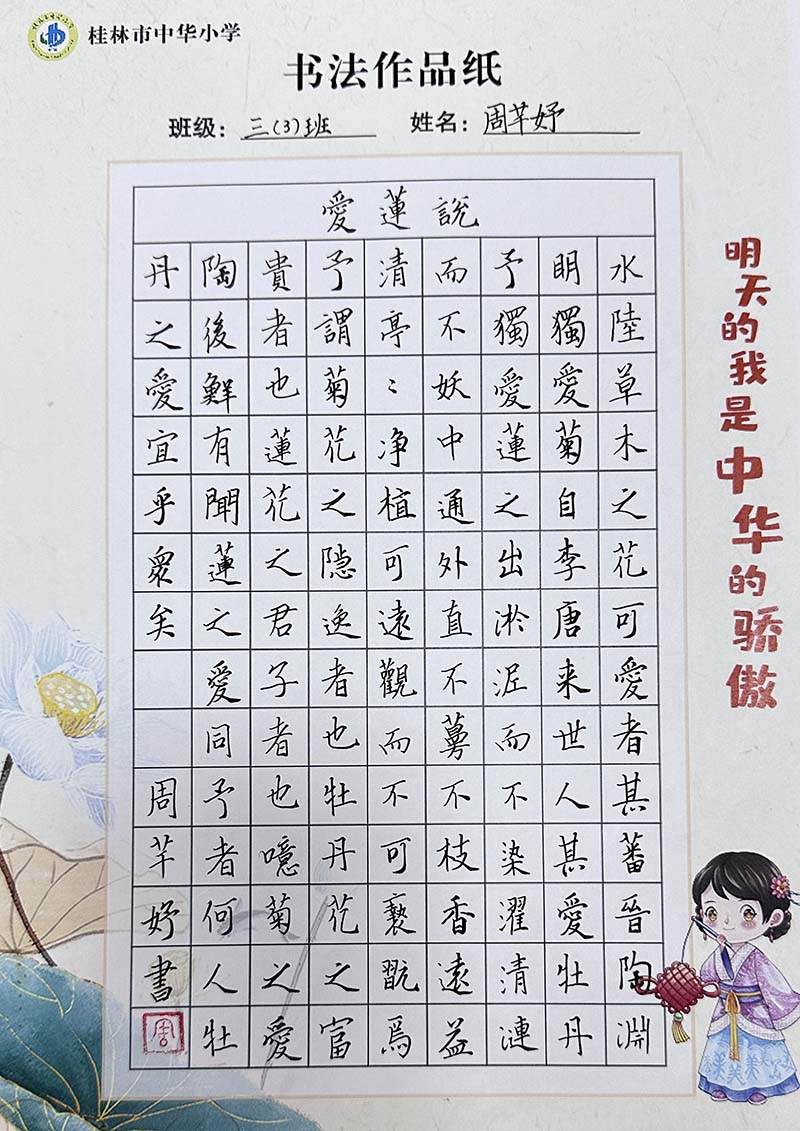 桂林市中华小学
书法作品纸
班级：三(3)班 姓名：周芊妤
愛蓮說
水陸草木之花可愛者其蕃晉陶淵
明獨愛菊自李唐来世人其愛牡丹
予獨愛蓮之出淤泥而不染濯清漣
而不妖中通外直不蔓不枝香遠益
清亭〻净植可遠觀而不可褻翫焉
予謂菊花之隐逸者也牡丹花之富
貴者也蓮花之君子者也噫菊之愛
陶後鮮有聞蓮之愛同予者何人牡
丹之愛宜乎衆矣
周芊妤書
周
明天的我是中华的骄傲